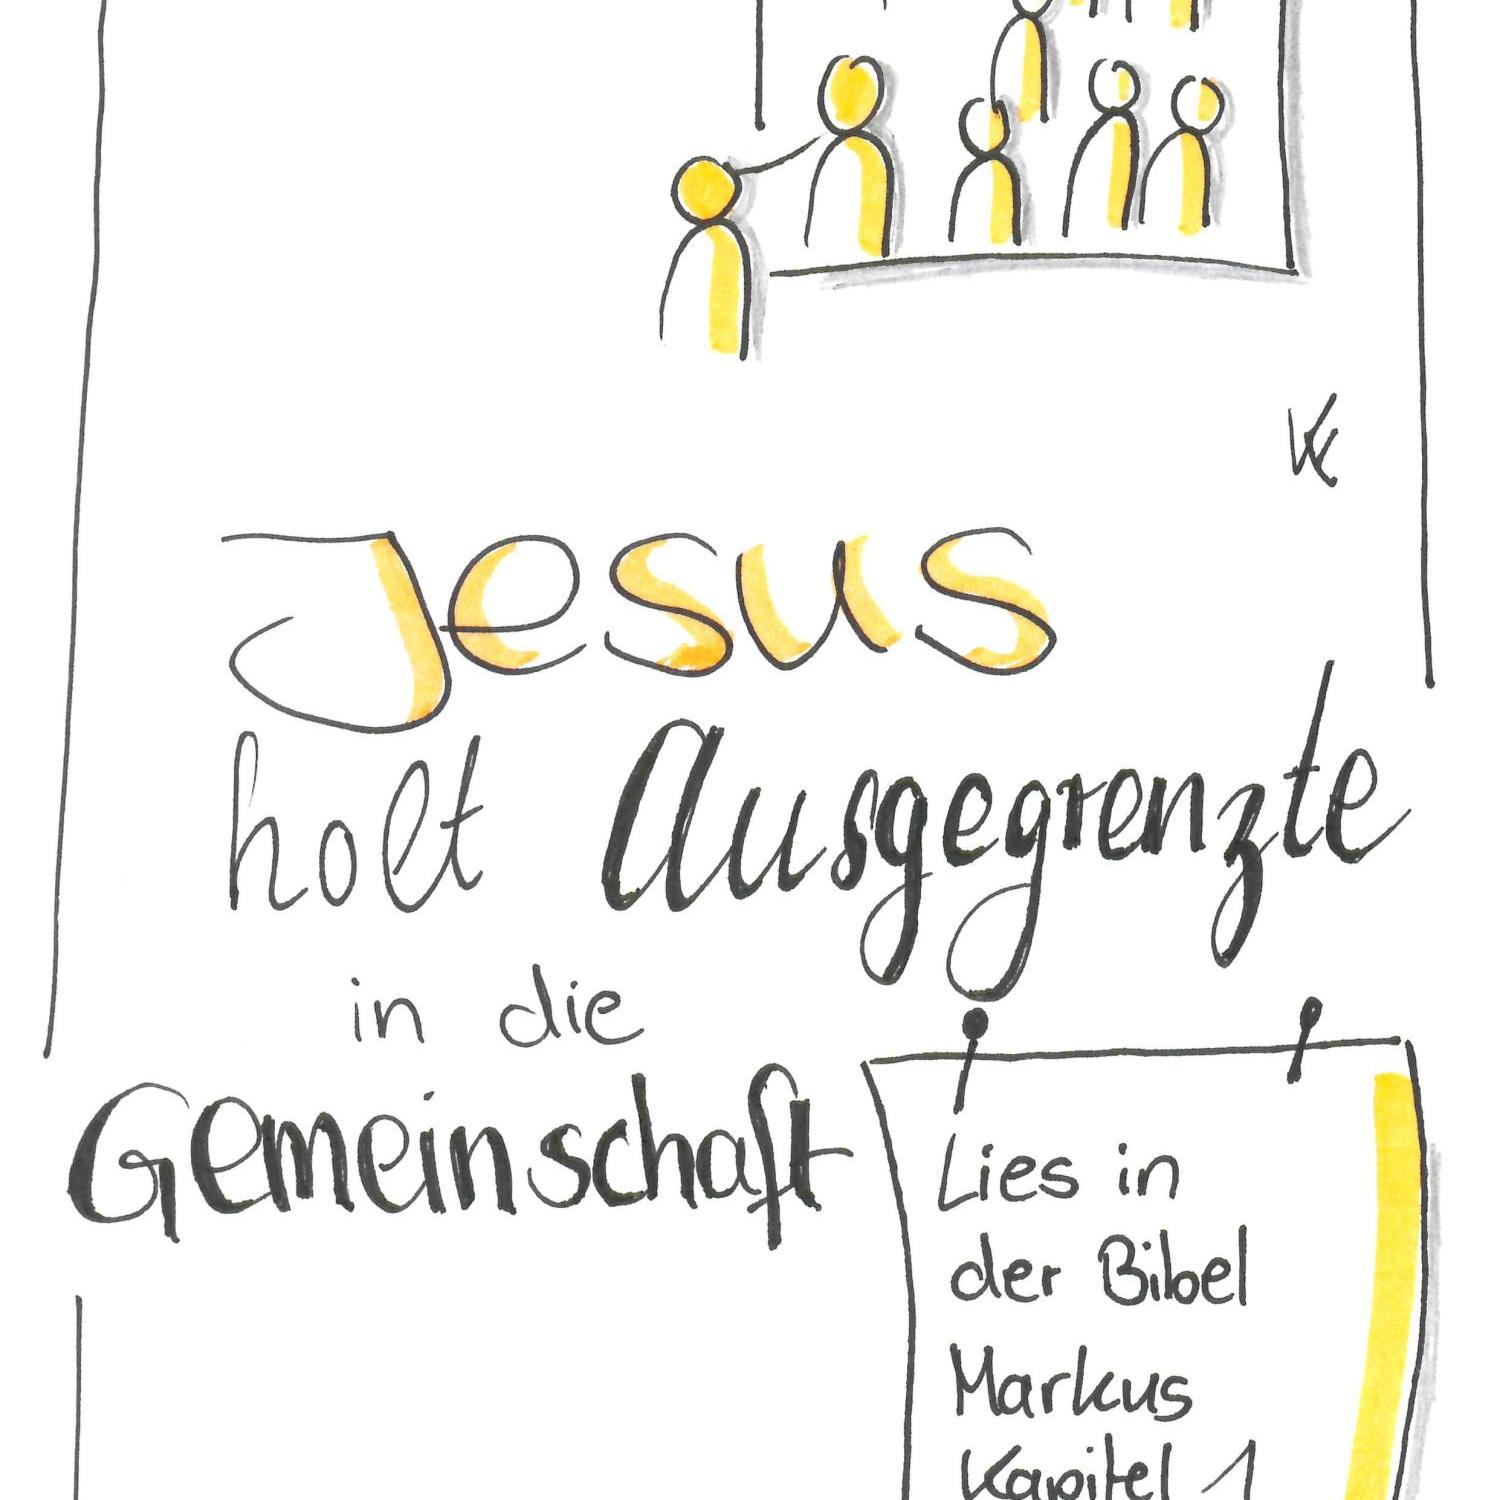 Jesus
holt Ausgegrenzte
in die
Gemeinschaft
Lies in
der Bibel
Markus
Kapitel 1